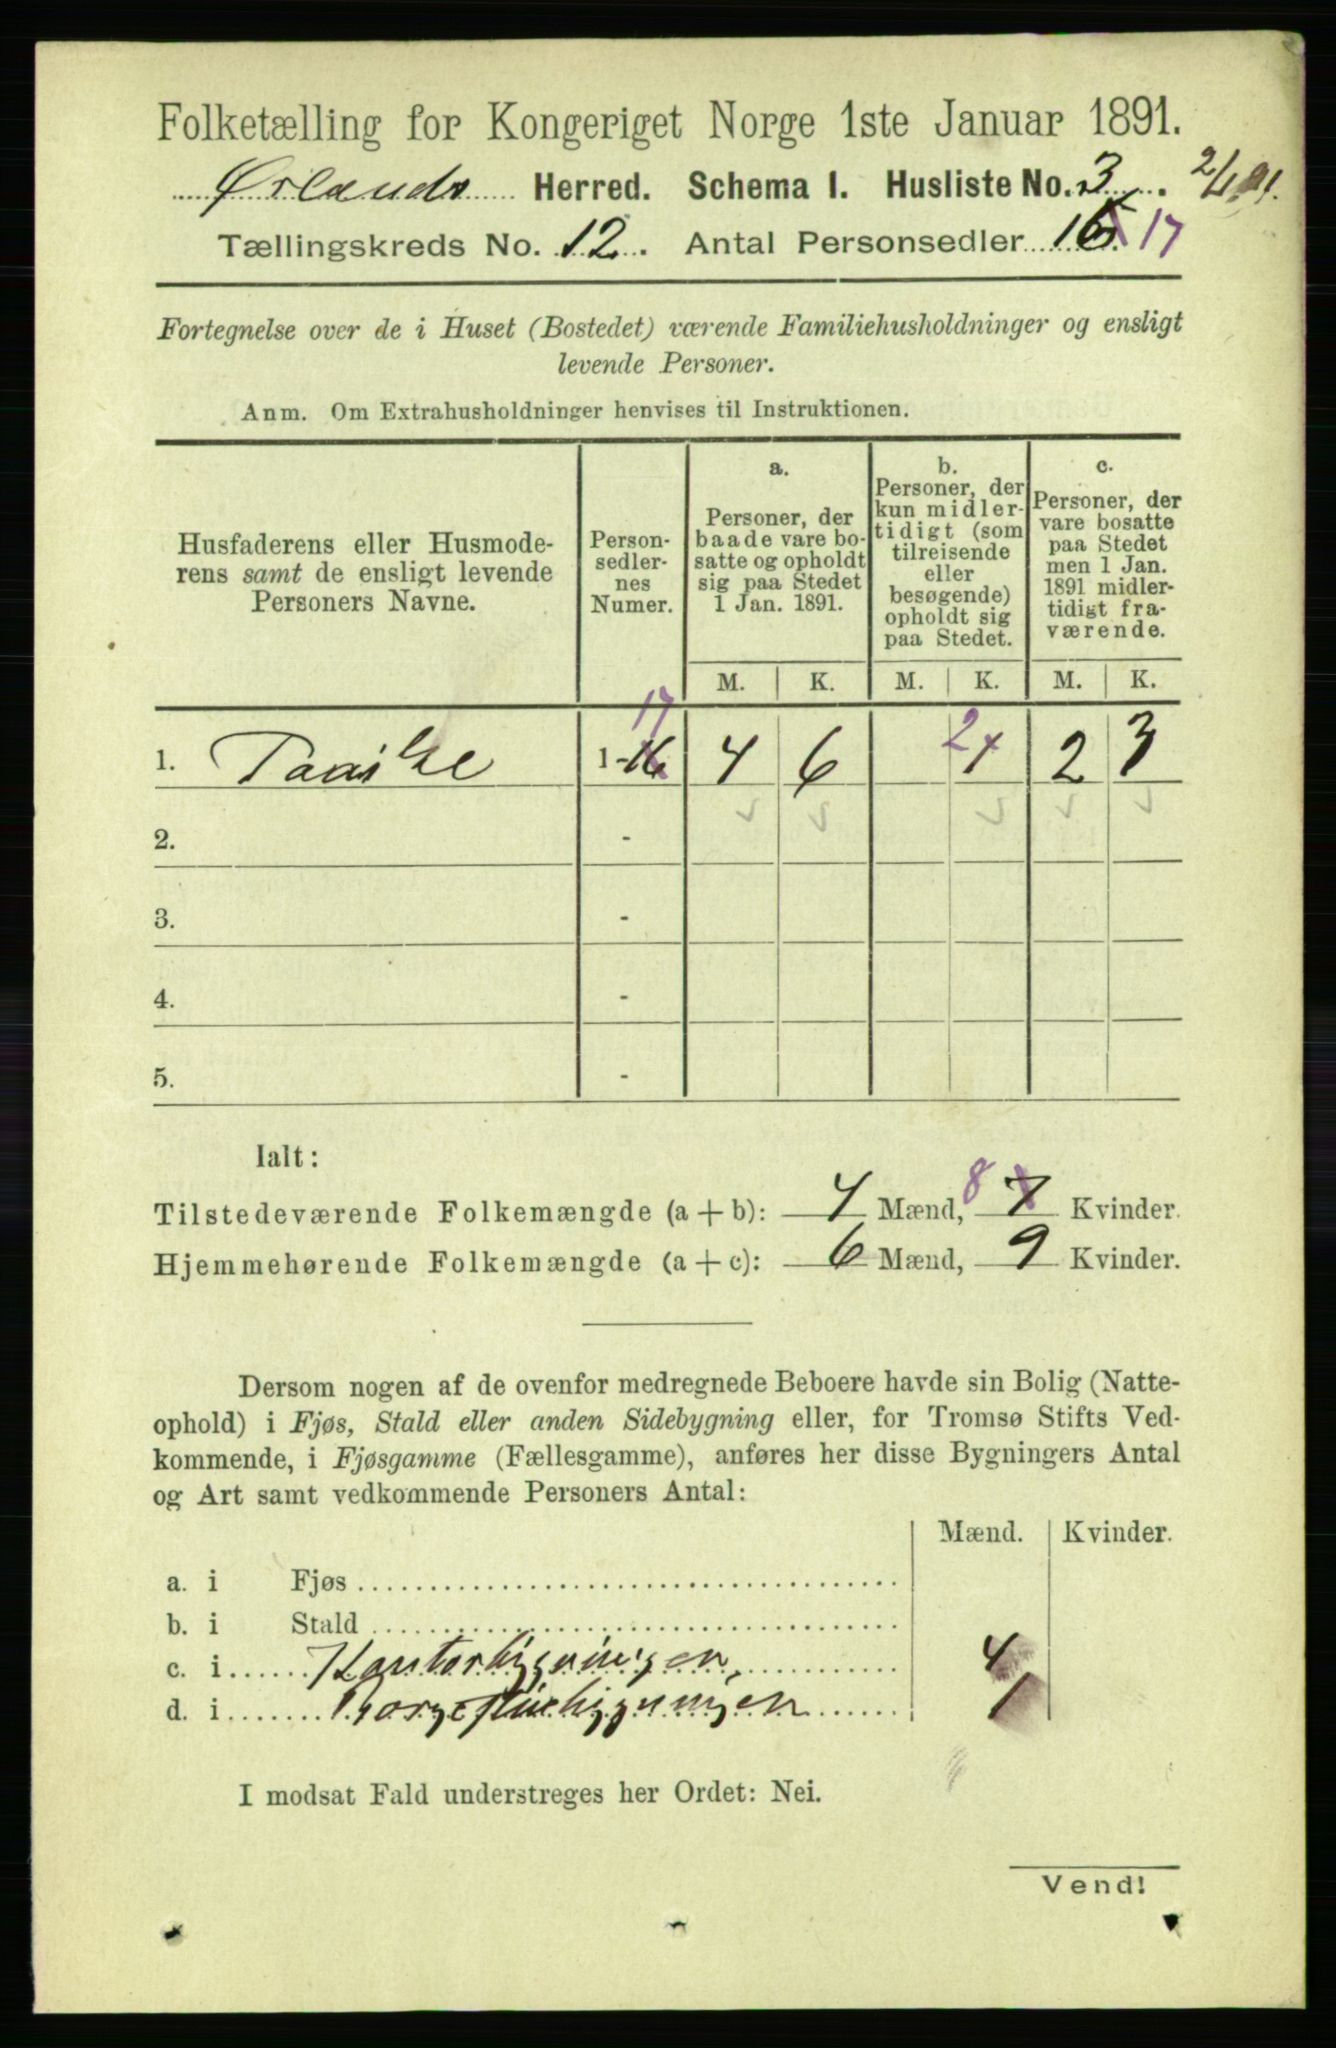 Folketælling for Kongeriget Norge 1ste Januar 1891.
Ørlands Herred. Schema 1. Husliste No. 3.
Tællingskreds No. 12. Antal Personsedler 16. 17
Fortegnelse over de i Huset (Bostedet) værende Familiehusholdninger og ensligt
levende Personer.
Anm. Om Extrahusholdninger henvises til Instruktionen.
Husfaderens eller Husmode-
rens samt de ensligt levende
Personers Navne.
Person-
sedler-
nes
Numer.
a.
Personer, der
baade vare bo-
satte og opholdt
sig paa Stedet
1 Jan. 1891.
b.
Personer, der
kun midler-
tidigt (som
tilreisende
eller
besøgende)
opholdt sig
paa Stedet.
c.
Personer, der
vare bosatte
paa Stedet
men 1 Jan.
1891 midler-
tidigt fra-
værende.
M. K. M. K. M. K.
17
1. 1-16 4 6 2 1 2 3
2. -
3. -
4. -
5. -
Ialt:
Tilstedeværende Folkemængde (a + b): 4 Mænd, 8 7 Kvinder.
Hjemmehørende Folkemængde (a + c): 6 Mænd, 9 Kvinder.
Dersom nogen af de ovenfor medregnede Beboere havde sin Bolig (Natte-
ophold) i Fjøs, Stald eller anden Sidebygning eller, for Tromsø Stifts Ved-
kommende, i Fjøsgamme (Fællesgamme), anføres her disse Bygningers Antal
og Art samt vedkommende Personers Antal:
Mænd. Kvinder.
a. i Fjøs
b. i Stald
c. i Kontorbygningen 4
d. i Borgestuebygningen 1
I modsat Fald understreges her Ordet: Nei.
Vend!